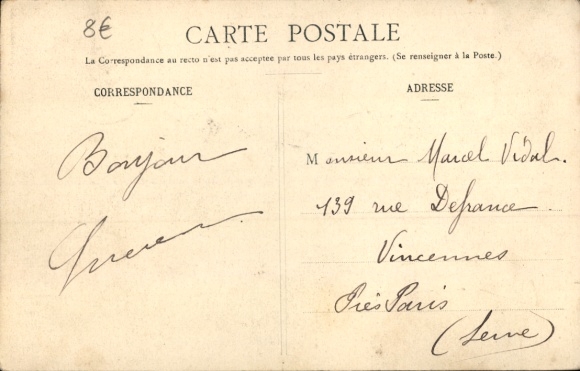 8€
CARTE POSTALE
La Correspondance au recto n'est pas acceptee par tous les pays étrangers. (Se renseigner à la Poste.)
CORRESPONDANCE
ADRESSE
Bonjour
Monsieur Marcel Vidal.
139 rue Defrance.
Vincennes
Près Paris
(Seine)